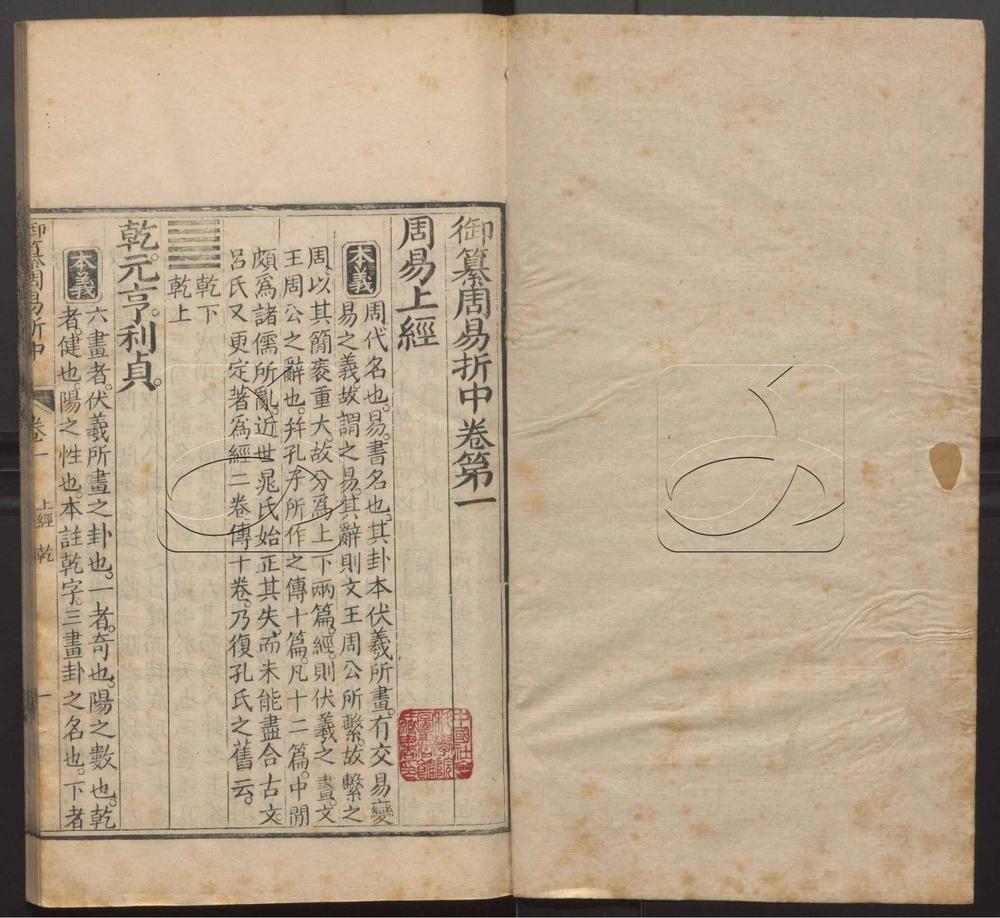 御纂周易折中卷第一
周易上經
本義
周代名也。易。書名也。其卦本伏羲所畫。有交易變
易之義。故謂之易。其辭則文王周公所繫。故繫之
周。以其簡袠重大。故分爲上下兩篇。經則伏羲之畫。文
王周公之辭也。幷孔子所作之傳十篇。凡十二篇。中間
頗爲諸儒所亂。近世晁氏始正其失。而未能盡合古文。
呂氏又更定著爲經二卷傳十卷。乃復孔氏之舊云。
乾下
乾上
乾。元亨。利貞。
本義
六畫者。伏羲所畫之卦也。一者。奇也。陽之數也。乾
者。健也。陽之性也。本註乾字。三畫卦之名也。下者
御纂周易折中
卷一
上經 乾
一